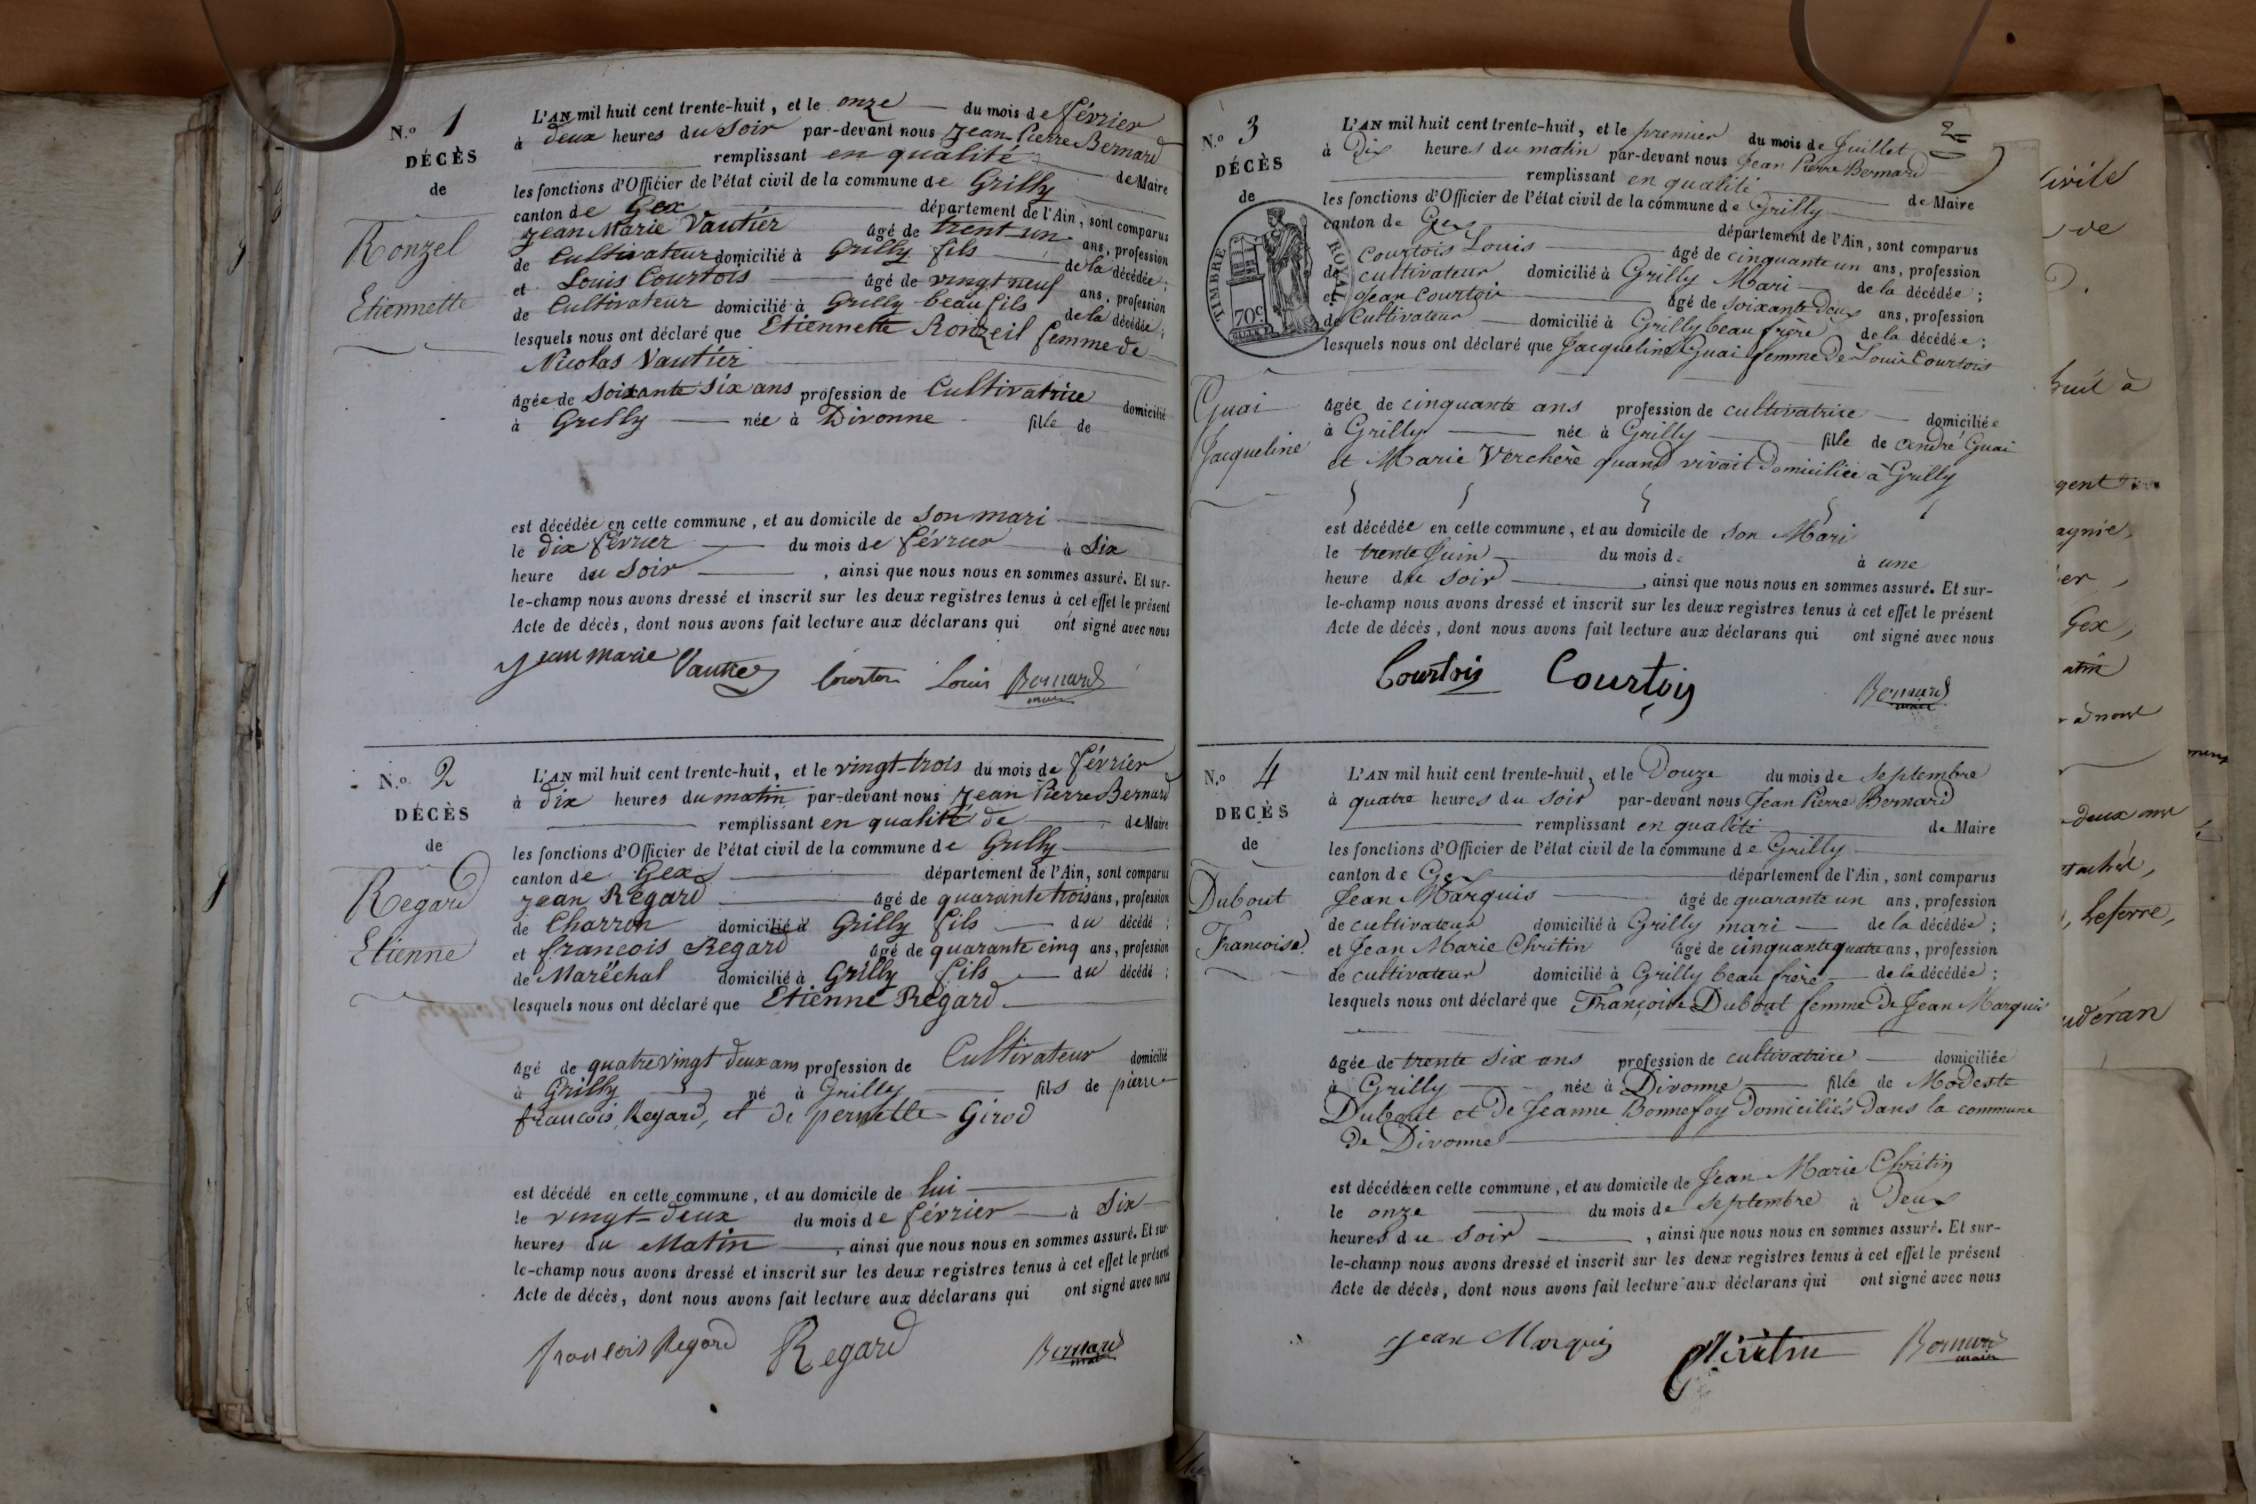 N.º 1
DÉCÈS
de
Ronzel
Etiennette
L'AN mil huit cent trente-huit, et le onze du mois de février
à deux heures du soir par-devant nous Jean Pierre Bernard
remplissant en qualité de Maire
les fonctions d'Officier de l'état civil de la commune de Grilly
canton de Gex département de l'Ain, sont comparus
Jean Marie Vautier âgé de trent-un ans, profession
de Cultivateur domicilié à Grilly fils de la décédée;
et Louis Courtois âgé de vingt neuf ans, profession
de Cultivateur domicilié à Grilly beau fils de la décédée;
lesquels nous ont déclaré que Etiennette Ronzeil femme de
Nicolas Vautier
âgée de soixante six ans profession de Cultivatrice domicilié
à Grilly née à Divonne fille de
est décédée en cette commune, et au domicile de son mari
le dix février du mois de février à six
heure du soir, ainsi que nous nous en sommes assuré. Et sur-
le-champ nous avons dressé et inscrit sur les deux registres tenus à cet effet le présent
Acte de décès, dont nous avons fait lecture aux déclarans qui ont signé avec nous
Jean Marie Vautier Courtois Louis Bernard
maire
N.º 2
DÉCÈS
de
Regard
Etienne
L'AN mil huit cent trente-huit, et le vingt-trois du mois de février
à dix heures du matin par-devant nous Jean Pierre Bernard
remplissant en qualité de de Maire
les fonctions d'Officier de l'état civil de la commune de Grilly
canton de Gex département de l'Ain, sont comparus
Jean Regard âgé de quarante trois ans, profession
de Charron domicilié à Grilly fils du décédé;
et françois Regard âgé de quarante cinq ans, profession
de Maréchal domicilié à Grilly fils du décédé;
lesquels nous ont déclaré que Etienne Regard
âgé de quatre vingt deux ans profession de Cultivateur domicilié
à Grilly né à Grilly fils de pierre
françois Regard, et de pernette Girod
est décédé en cette commune, et au domicile de lui
le vingt-deux du mois de février à six
heures du Matin, ainsi que nous nous en sommes assuré. Et sur-
le-champ nous avons dressé et inscrit sur les deux registres tenus à cet effet le présent
Acte de décès, dont nous avons fait lecture aux déclarans qui ont signé avec nous
francois Regard Regard Bernard
maire
N.º 3
DÉCÈS
de
TIMBRE ROYAL
70c
Guai
Jacqueline
2
L'AN mil huit cent trente-huit, et le premier du mois de Juillet
à Dix heures du matin par-devant nous Jean Pierre Bernard
remplissant en qualité de Maire
les fonctions d'Officier de l'état civil de la commune de Grilly
canton de Gex département de l'Ain, sont comparus
Courtois Louis âgé de cinquante un ans, profession
de cultivateur domicilié à Grilly Mari de la décédée;
et Jean Courtois âgé de soixante deux ans, profession
de Cultivateur domicilié à Grilly beau frère de la décédée;
lesquels nous ont déclaré que Jacqueline Guai femme de Louis Courtois
âgée de cinquante ans profession de cultivatrice domiciliée
à Grilly née à Grilly fille de andré Guai
et Marie Verchère quand vivait domiciliée à Grilly
est décédée en cette commune, et au domicile de son Mari
le trente Juin du mois de à une
heure du soir, ainsi que nous nous en sommes assuré. Et sur-
le-champ nous avons dressé et inscrit sur les deux registres tenus à cet effet le présent
Acte de décès, dont nous avons fait lecture aux déclarans qui ont signé avec nous
Courtois Courtois Bernard
maire
N.º 4
DÉCÈS
de
Dubout
Françoise
L'AN mil huit cent trente-huit, et le Douze du mois de septembre
à quatre heures du soir par-devant nous Jean Pierre Bernard
remplissant en qualité de Maire
les fonctions d'Officier de l'état civil de la commune de Grilly
canton de Gex département de l'Ain, sont comparus
Jean Marquis âgé de quarante un ans, profession
de cultivateur domicilié à Grilly mari de la décédée;
et Jean Marie Chritin âgé de cinquante quatre ans, profession
de cultivateur domicilié à Grilly beau frère de la décédée;
lesquels nous ont déclaré que Françoise Dubout femme de Jean Marquis
âgée de trente six ans profession de cultivatrice domiciliée
à Grilly née à Divonne fille de Modeste
Dubout et de Jeanne Bonnefoy domiciliés dans la commune
de Divonne
est décédée en cette commune, et au domicile de Jean Marie Chritin
le onze du mois de septembre à Deux
heures du soir, ainsi que nous nous en sommes assuré. Et sur-
le-champ nous avons dressé et inscrit sur les deux registres tenus à cet effet le présent
Acte de décès, dont nous avons fait lecture aux déclarans qui ont signé avec nous
Jean Marquis Chritin Bernard
maire
civile
de
huit à
Gex,
à nous
deux
Leferre,